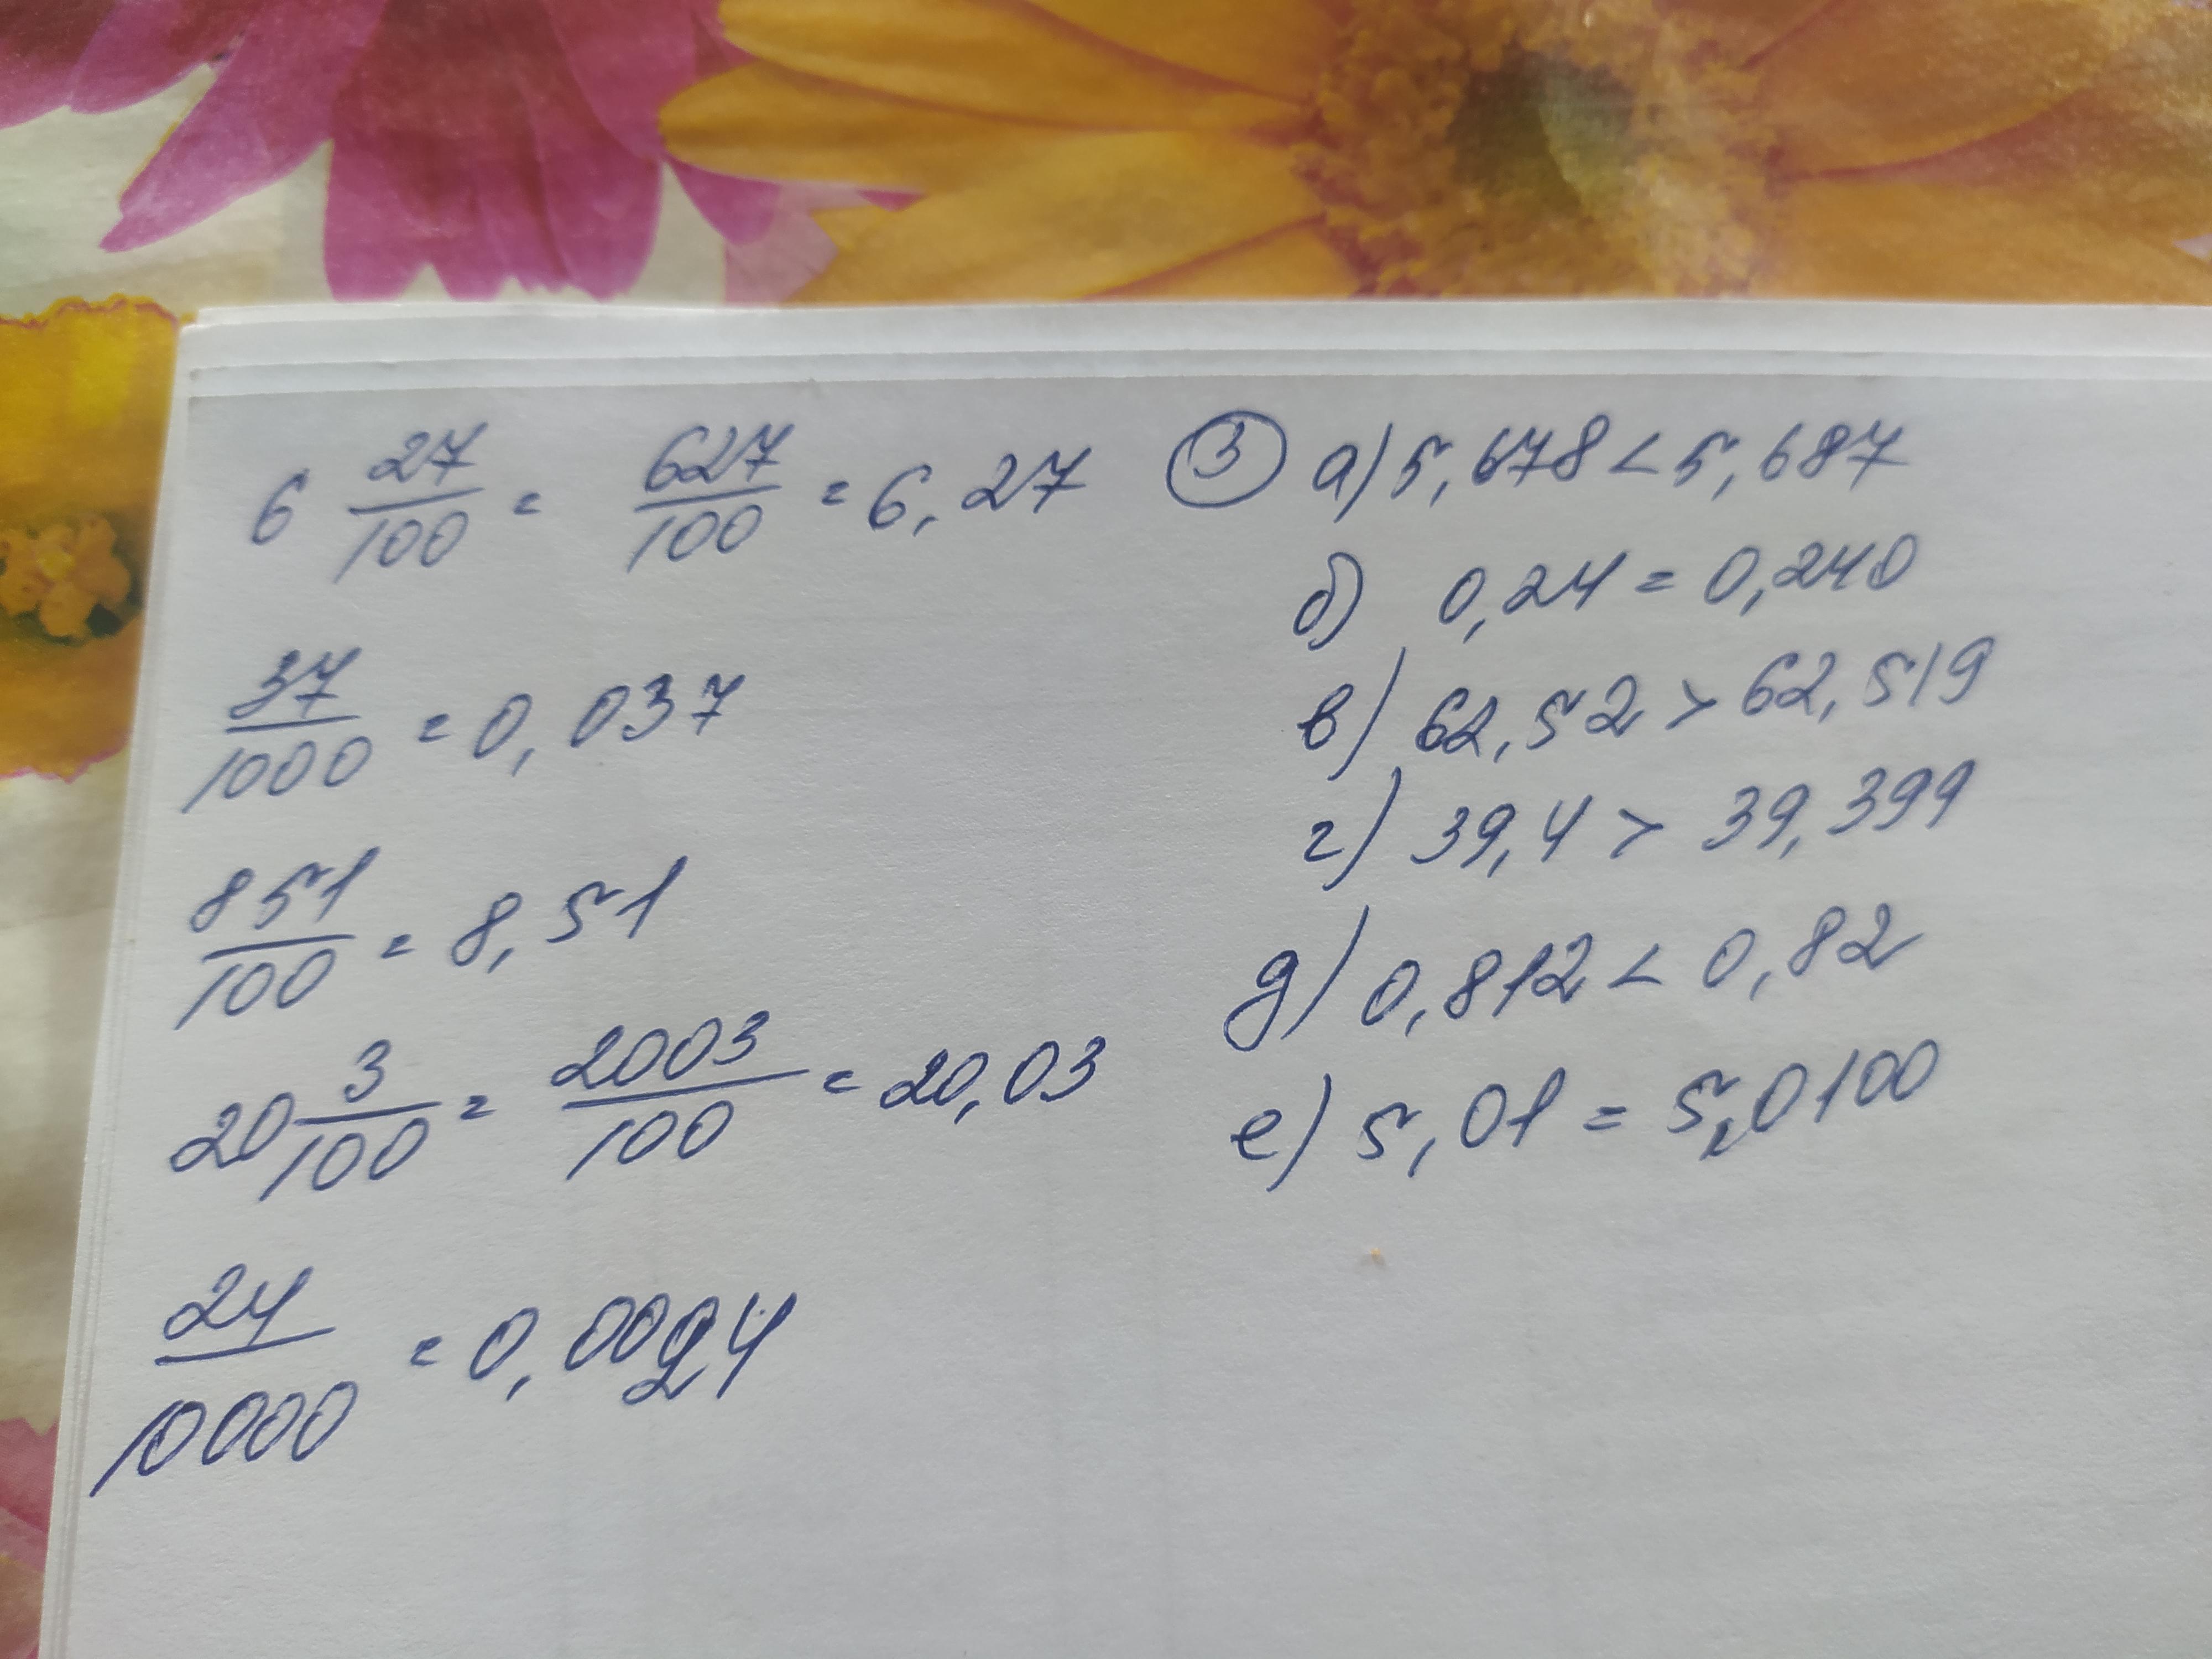 6 27/100 = 627/100 = 6,27
37/1000 = 0,037
851/100 = 8,51
20 3/100 = 2003/100 = 20,03
24/10000 = 0,0024
3 а) 5,678 < 5,687
б) 0,24 = 0,240
в) 62,52 > 62,519
г) 39,4 > 39,399
д) 0,812 < 0,82
е) 5,01 = 5,0100